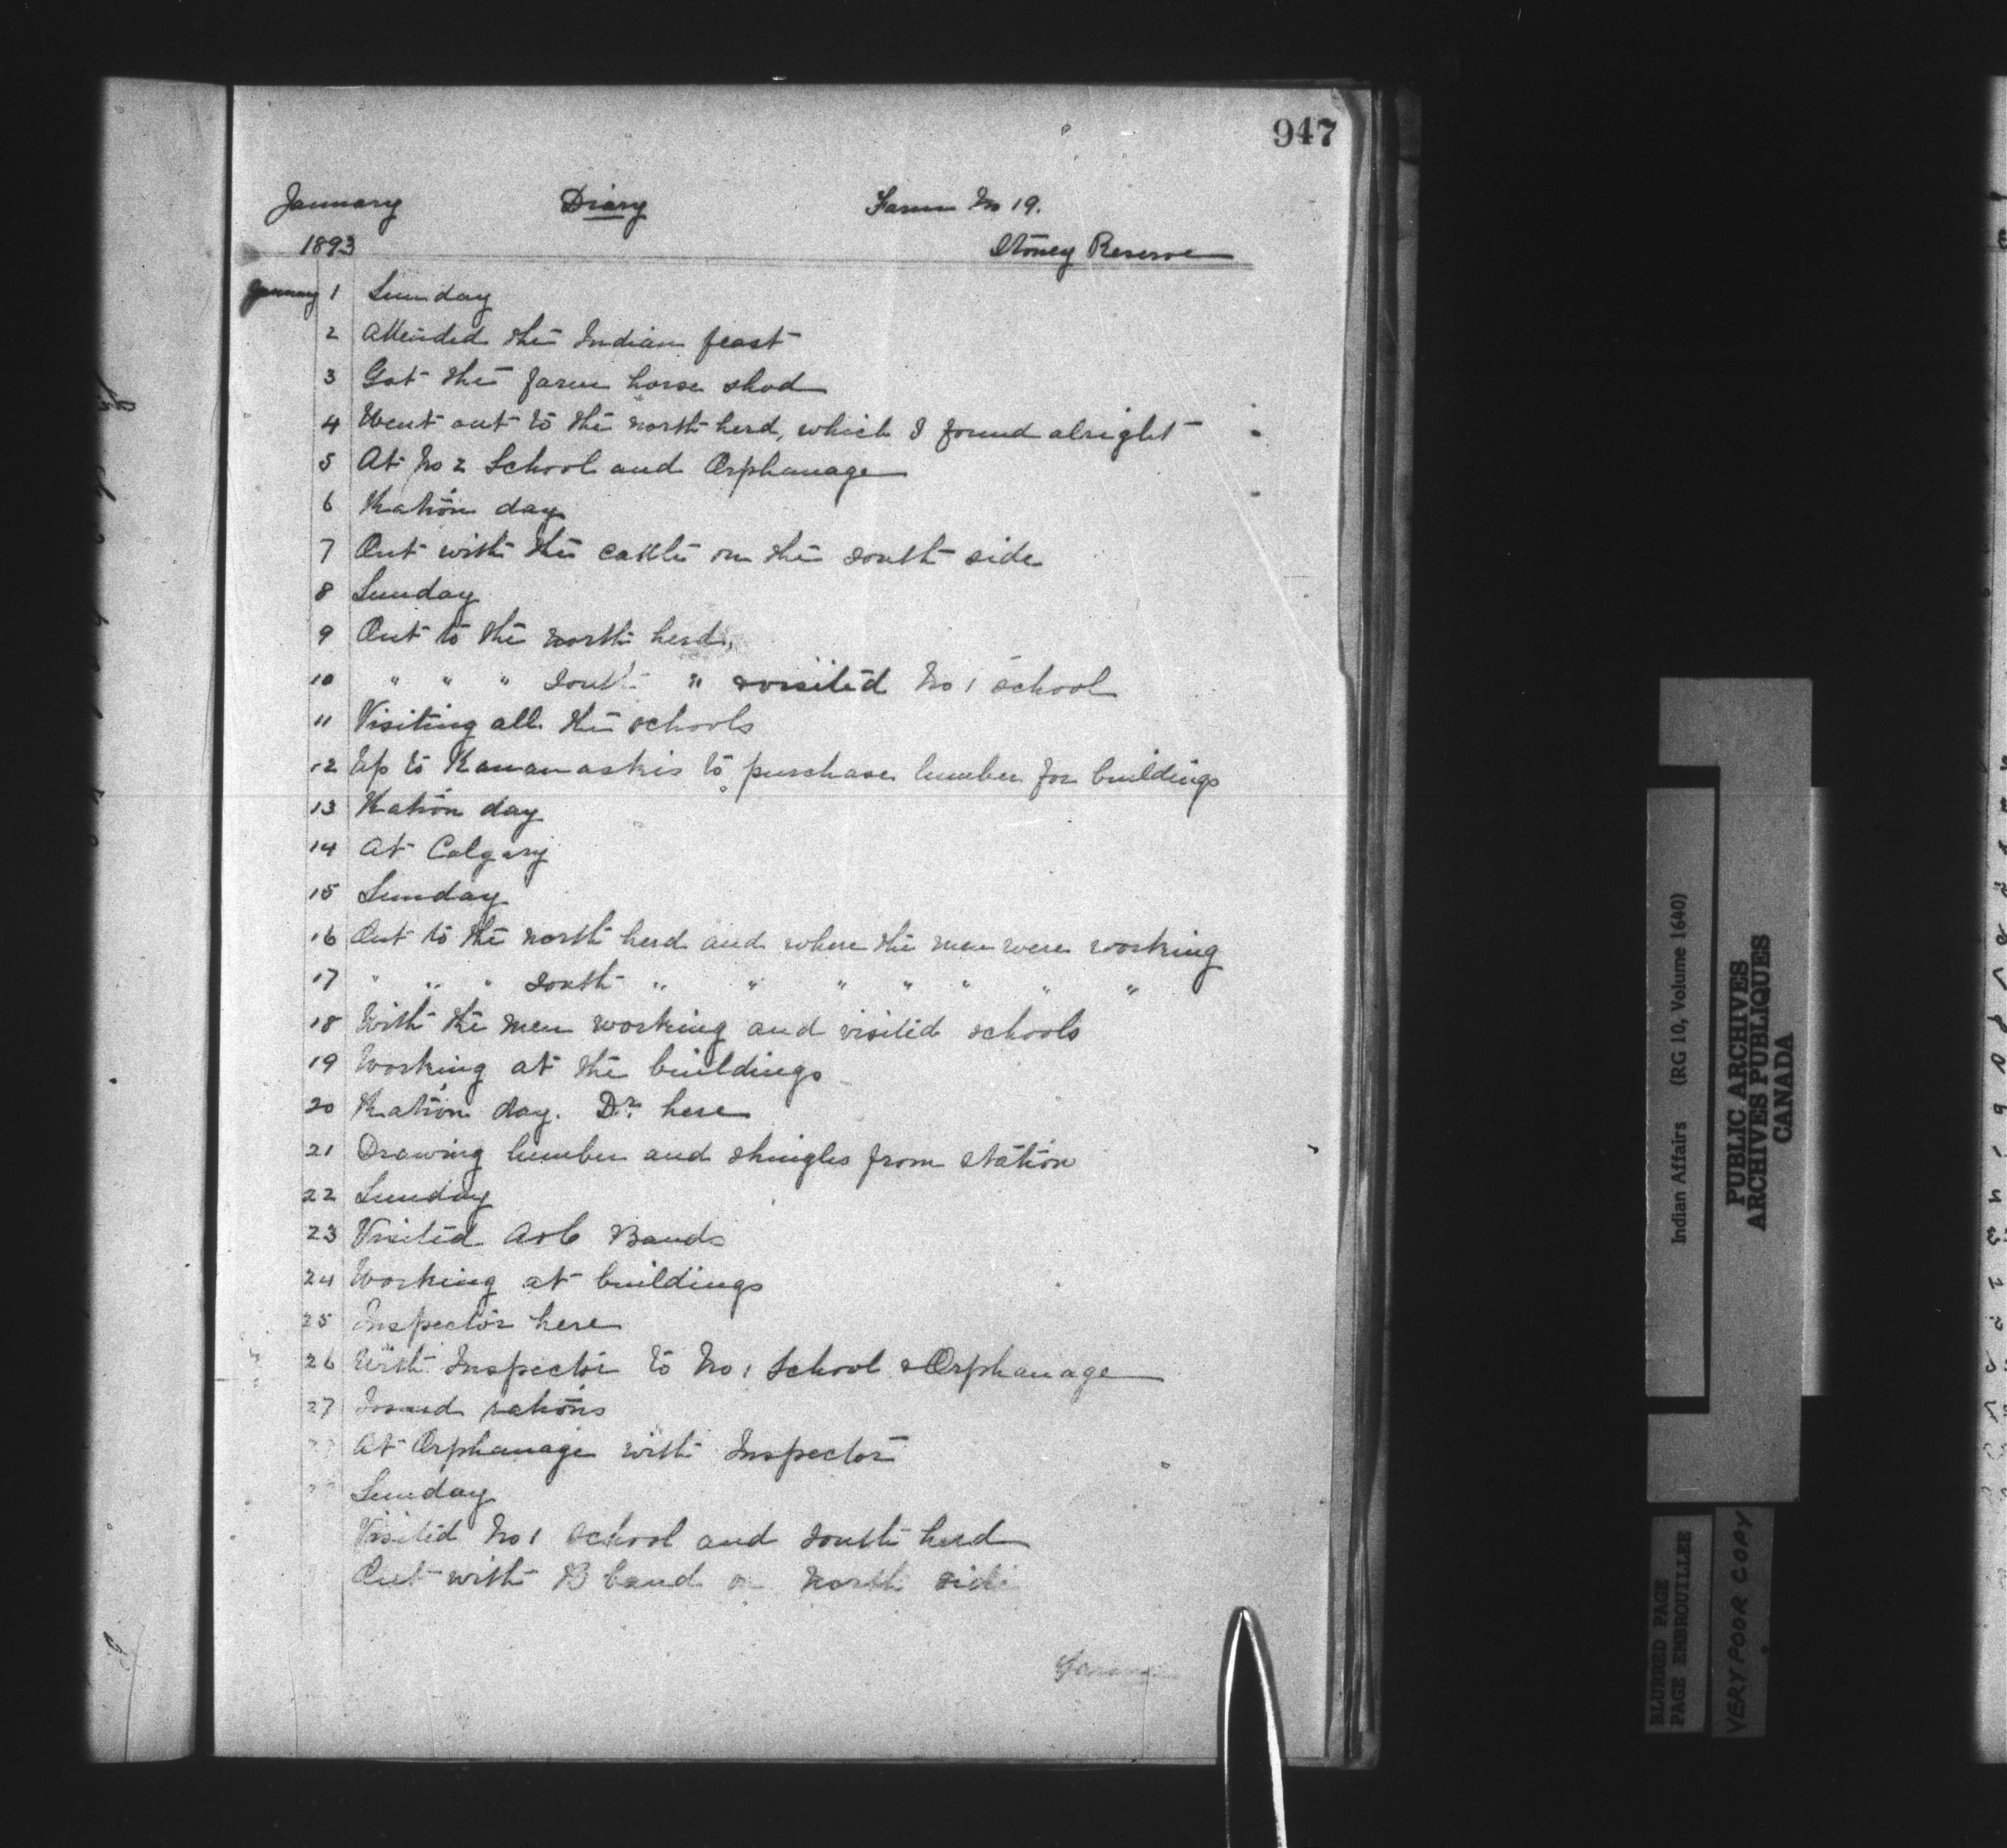 947
January Diary Farm No 19.
1893 Stoney Reserve
January 1 Sunday
2 Attended the Indian feast
3 Got the farm horse shod
4 Went out to the north herd, which I found alright
5 At No 2 School and Orphanage
6 Ration day
7 Out with the cattle on the south side
8 Sunday
9 Out to the north herd,
10 " " " South " visited No 1 school
11 Visiting all the schools
12 Up to Kananaskis to purchase lumber for buildings
13 Ration day
14 At Calgary
15 Sunday
16 Out to the north herd and where the men were working
17 " " " South " " " " " " "
18 With the men working and visited schools
19 Working at the buildings
20 Ration day. Dr. here
21 Drawing lumber and shingles from station
22 Sunday
23 Visited Bands
24 Working at buildings
25 Inspector here
26 With Inspector to No 1 School & Orphanage
27 Issued rations
At Orphanage with Inspector
Sunday
Visited No 1 School and South herd
Out with B band on North side
Indian Affairs (RG 10, Volume 1640)
PUBLIC ARCHIVES
ARCHIVES PUBLIQUES
CANADA
BLURRED PAGE
PAGE EMBROUILLEE
VERY POOR COPY